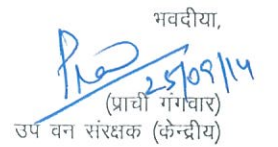 भवदीया,
25/09/14
(प्राची गंगवार)
उप वन संरक्षक (केन्द्रीय)